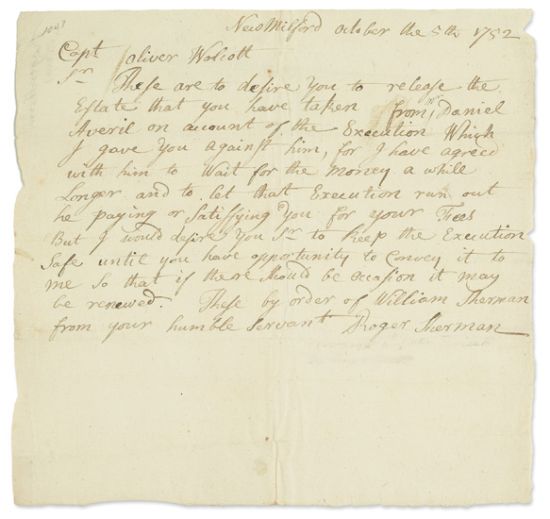 New Milford October the 5th 1752
Capt Oliver Wolcott
Sr These are to desire You to release the
Estate that you have taken from Daniel
Averil on account of the Execution Which
I gave You against him, for I have agreed
with him to Wait for the Money a while
Longer and to let that Execution run out
he paying or Satisfying You for your Fees
But I would desire You Sr to keep the Execution
Safe until you have opportunity to Convey it to
me so that if there Should be Occasion it may
be renewed. These by order of William Sherman
from your humble Servant Roger Sherman